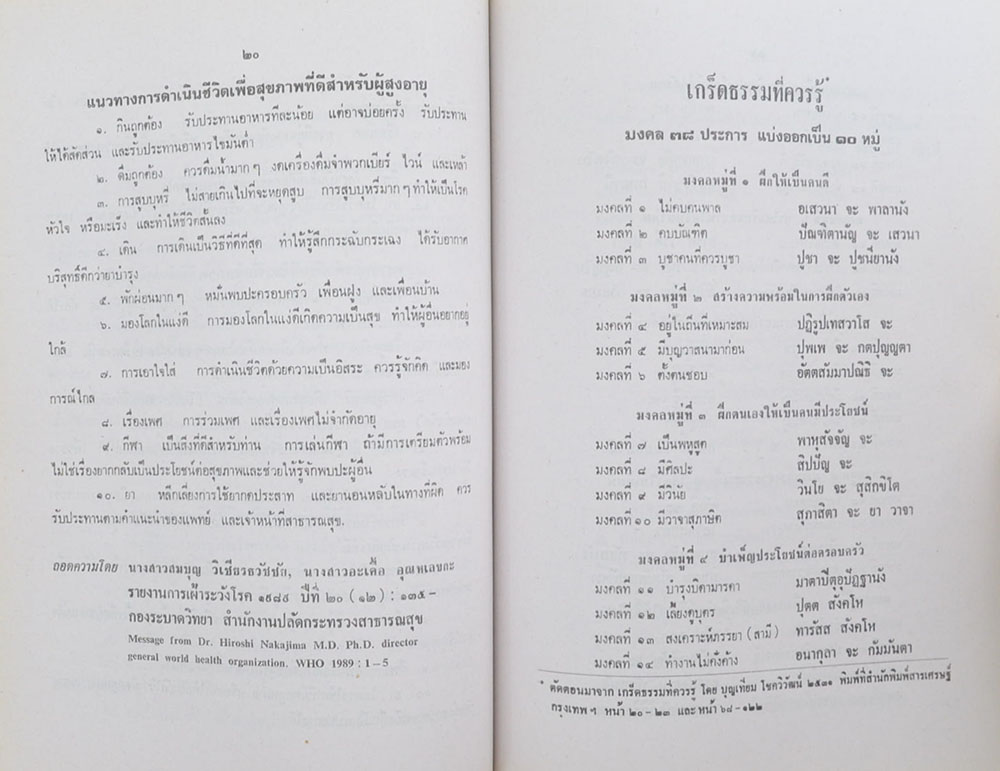 ๒๐
แนวทางการดำเนินชีวิตเพื่อสุขภาพที่ดีสำหรับผู้สูงอายุ
๑. กินถูกต้อง รับประทานอาหารทีละน้อย แต่อาจบ่อยครั้ง รับประทาน
ให้ได้สัดส่วน และรับประทานอาหารไขมันต่ำ
๒. ดื่มถูกต้อง ควรดื่มน้ำมากๆ งดเครื่องดื่มจำพวกเบียร์ ไวน์ และเหล้า
๓. การสูบบุหรี่ ไม่สายเกินไปที่จะหยุดสูบ การสูบบุหรี่มากๆ ทำให้เป็นโรค
หัวใจ หรือมะเร็ง และทำให้ชีวิตสั้นลง
๔. เดิน การเดินเป็นวิธีที่ดีที่สุด ทำให้รู้สึกกระฉับกระเฉง ได้รับอากาศ
บริสุทธิ์ดีกว่ายาบำรุง
๕. พักผ่อนมากๆ หมั่นพบปะครอบครัว เพื่อนฝูง และเพื่อนบ้าน
๖. มองโลกในแง่ดี การมองโลกในแง่ดีเกิดความเป็นสุข ทำให้ผู้อื่นอยากอยู่
ใกล้
๗. การเอาใจใส่ การดำเนินชีวิตด้วยความเป็นอิสระ ควรรู้จักคิด และมอง
การณ์ไกล
๘. เรื่องเพศ การร่วมเพศ และเรื่องเพศไม่จำกัดอายุ
๙. กีฬา เป็นสิ่งที่ดีสำหรับท่าน การเล่นกีฬา ถ้ามีการเตรียมตัวพร้อม
ไม่ใช่เรื่องยากกลับเป็นประโยชน์ต่อสุขภาพและช่วยให้รู้จักพบปะผู้อื่น
๑๐. ยา หลีกเลี่ยงการใช้ยากดประสาท และยานอนหลับในทางที่ผิด ควร
รับประทานตามคำแนะนำของแพทย์ และเจ้าหน้าที่สาธารณสุข.
ถอดความโดย นางสาวสมบุญ วิเชียรธวัชชัย, นางสาวอะเคื้อ
รายงานการเฝ้าระวังโรค ๑๙๘๙ ปีที่ ๒๐ (๑๒) : ๑๓๕-
กองระบาดวิทยา สำนักงานปลัดกระทรวงสาธารณสุข
Message from Dr. Hiroshi Nakajima M.D. Ph.D. director
general world health organization. WHO 1989 : 1-5
เกร็ดธรรมที่ควรรู้*
มงคล ๓๘ ประการ แบ่งออกเป็น ๑๐ หมู่
มงคลหมู่ที่ ๑ ฝึกให้เป็นคนดี
มงคลที่ ๑ ไม่คบคนพาล อเสวนา จะ พาลานัง
มงคลที่ ๒ คบบัณฑิต ปัณฑิตานัญ จะ เสวนา
มงคลที่ ๓ บูชาคนที่ควรบูชา ปูชา จะ ปูชนียานัง
มงคลหมู่ที่ ๒ สร้างความพร้อมในการฝึกตัวเอง
มงคลที่ ๔ อยู่ในถิ่นที่เหมาะสม ปฏิรูปเทสวาโส จะ
มงคลที่ ๕ มีบุญวาสนามาก่อน ปุพเพ จะ กตปุญญตา
มงคลที่ ๖ ตั้งตนชอบ อัตตสัมมาปณิธิ จะ
มงคลหมู่ที่ ๓ ฝึกตนเองให้เป็นคนมีประโยชน์
มงคลที่ ๗ เป็นพหูสูต พาหุสัจจัญ จะ
มงคลที่ ๘ มีศิลปะ สิปปัญ จะ
มงคลที่ ๙ มีวินัย วินโย จะ สุสิกขิโต
มงคลที่ ๑๐ มีวาจาสุภาษิต สุภาสิตา จะ ยา วาจา
มงคลหมู่ที่ ๔ บำเพ็ญประโยชน์ต่อครอบครัว
มงคลที่ ๑๑ บำรุงบิดามารดา มาตาปิตุอุปัฏฐานัง
มงคลที่ ๑๒ เลี้ยงดูบุตร ปุตต สังคโห
มงคลที่ ๑๓ สงเคราะห์ภรรยา (สามี) ทารัสส สังคโห
มงคลที่ ๑๔ ทำงานไม่คั่งค้าง อนากุลา จะ กัมมันตา
* ตัดตอนมาจาก เกร็ดธรรมที่ควรรู้ โดย บุญเทียม โชควิวัฒน์ ๒๕๓๑ พิมพ์ที่สำนักพิมพ์สารเศรษฐ์
กรุงเทพฯ หน้า ๒๐-๒๓ และหน้า ๖๘-๑๒๒